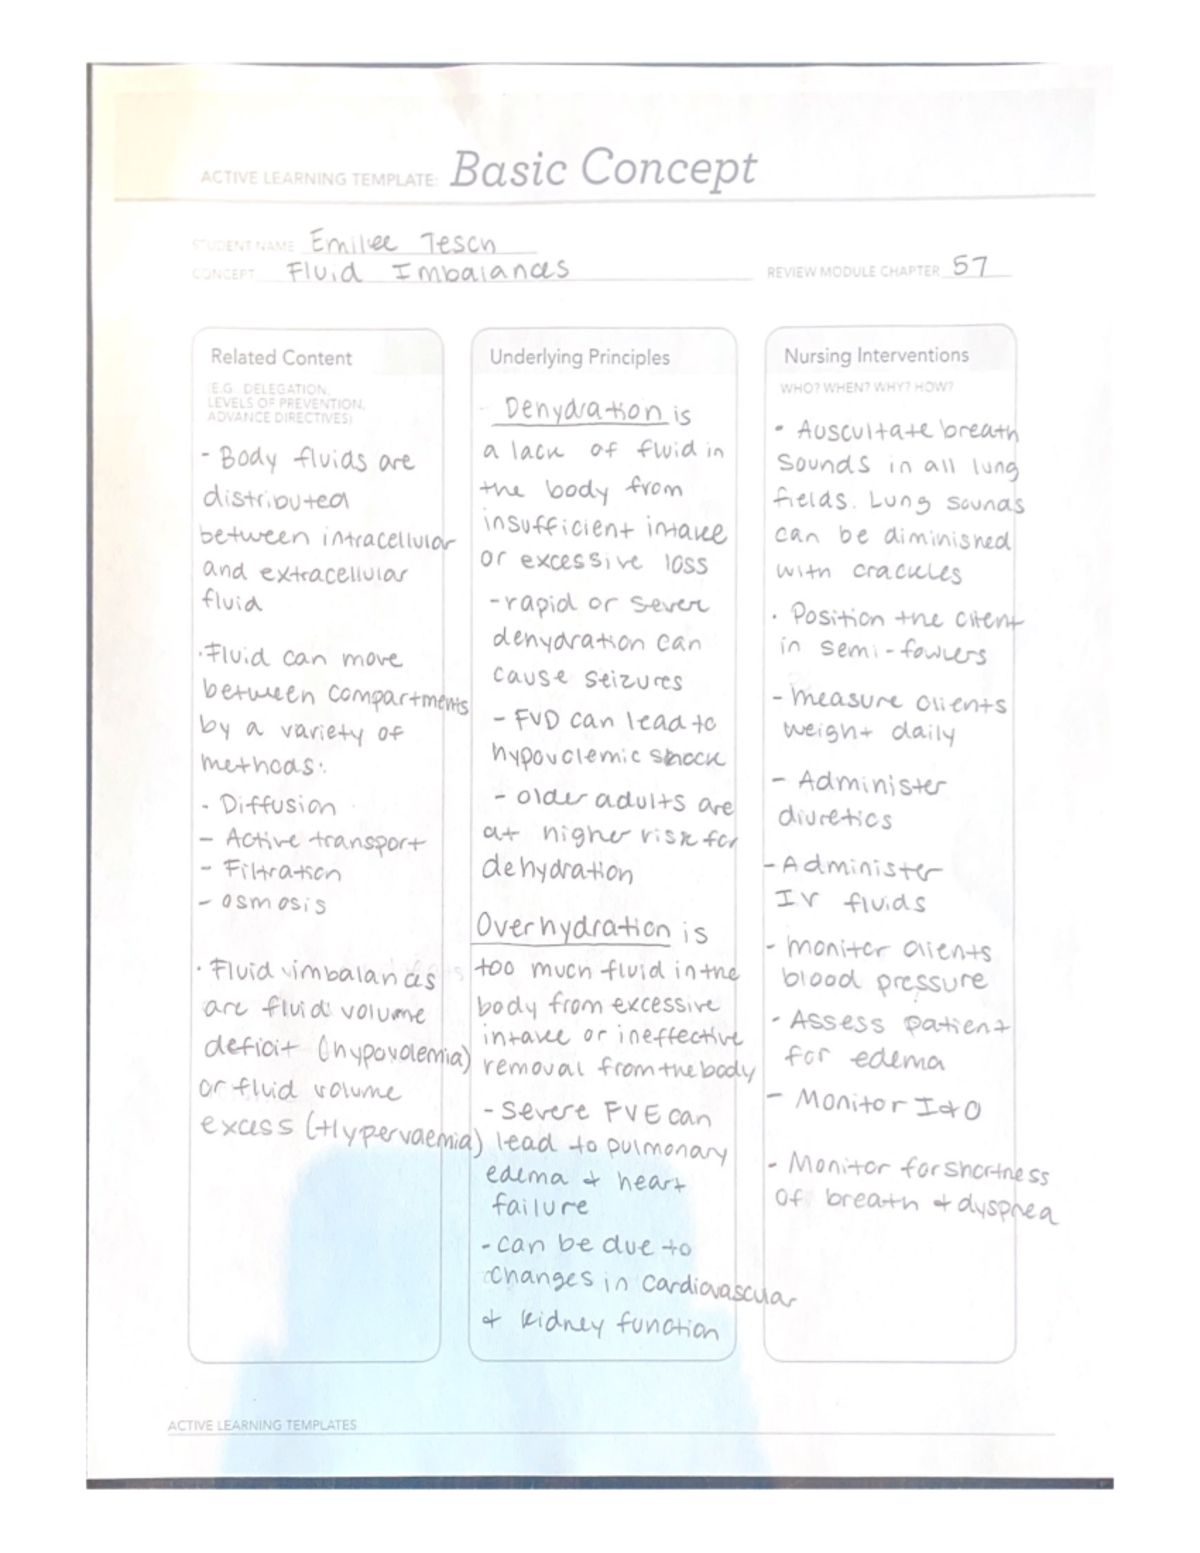 ACTIVE LEARNING TEMPLATE: Basic Concept
STUDENT NAME Emilee Tesch
CONCEPT Fluid Imbalances
REVIEW MODULE CHAPTER 57
Related Content
(E.G. DELEGATION,
LEVELS OF PREVENTION,
ADVANCE DIRECTIVES)
- Body fluids are
distributed
between intracellular
and extracellular
fluid
· Fluid can move
between compartments
by a variety of
methods:
- Diffusion
- Active transport
- Filtration
- osmosis
· Fluid imbalances
are fluid volume
deficit (hypovolemia)
or fluid volume
excess (Hypervaemia)
Underlying Principles
- Dehydration is
a lack of fluid in
the body from
insufficient intake
or excessive loss
- rapid or sever
dehydration can
cause seizures
- FVD can lead to
hypovolemic shock
- older adults are
at higher risk for
dehydration
Overhydration is
too much fluid in the
body from excessive
intake or ineffective
removal from the body
- Severe FVE can
lead to pulmonary
edema & heart
failure
- can be due to
changes in cardiovascular
& kidney function
Nursing Interventions
WHO? WHEN? WHY? HOW?
- Auscultate breath
sounds in all lung
fields. Lung sounds
can be diminished
with crackles
· Position the client
in semi-fowlers
- measure clients
weight daily
- Administer
diuretics
- Administer
IV fluids
- monitor clients
blood pressure
- Assess patient
for edema
- Monitor I&O
- Monitor for shortness
of breath & dyspnea
ACTIVE LEARNING TEMPLATES